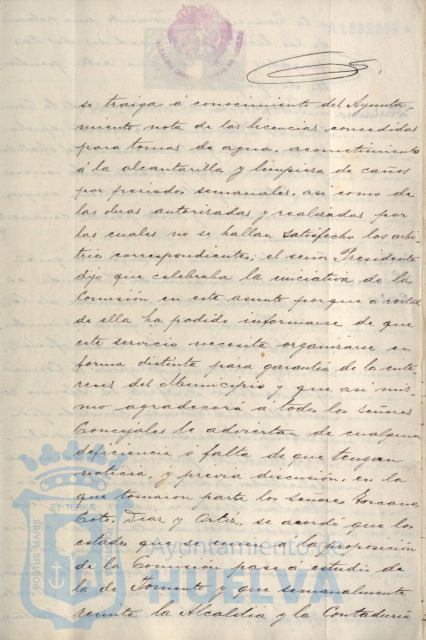 se traiga á conocimiento del Ayunta-
miento, nota de las licencias, concedidas
para tomas de agua, acometimiento
á la alcantarilla y limpieza de caños
por periodos semanales, asi como de
las obras autorizadas y realizadas por
las cuales no se hallan satisfecho los arbi-
trios correspondientes; el señor Presidente
dijo que celebraba la iniciativa de la
Comisión en este asunto porque á virtud
de ella ha podido informarse de que
este servicio necesita organizarse en
forma distinta para garantia de los inte-
reses del Municipio y que asi mis-
mo agradecerá á todos los señores
Concejales le adviertan de cualquier
deficiencia ó falta de que tengan
noticia, y previa discusión, en la
que tomaron parte los señores
Coto, Diaz y Ortiz, se acordo que los
estados que se á la proposición
de la Comisión pase á estudio de
la de Fomento y que semanalmente
remita la Alcaldia y la Contaduria
PORTUS MARIS ET TERRAE
Ayuntamiento de
HUELVA